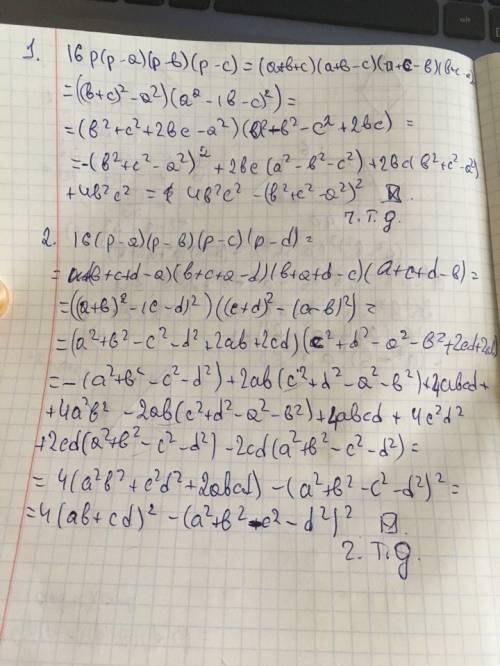 1. 16p(p-a)(p-в)(p-c) = (a+в+c)(a+в-c)(a+c-в)(в+c-a)
= ((в+c)² - a²)(a² - (в-c)²) =
= (в²+c²+2вc-a²)(a²-в²-c²+2вc) =
= -(в²+c²-a²)² + 2вc(a²-в²-c²) + 2вc(в²+c²-a²)
+4в²c² = 4в²c² - (в²+c²-a²)²
ч.т.д.
2. 16(p-a)(p-в)(p-c)(p-d) =
= (в+c+d-a)(в+c+a-d)(в+a+d-c)(a+c+d-в) =
= ((a+в)² - (c-d)²)((c+d)² - (a-в)²) =
= (a²+в²-c²-d²+2ab+2cd)(c²+d²-a²-в²+2cd+2ab)
= -(a²+в²-c²-d²) + 2ab(c²+d²-a²-в²) + 4abcd +
+4a²в² - 2ab(c²+d²-a²-в²) + 4abcd + 4c²d²
+2cd(a²+в²-c²-d²) - 2cd(a²+в²-c²-d²) =
= 4(a²в²+c²d²+2abcd) - (a²+в²-c²-d²)² =
= 4(ab+cd)² - (a²+в²-c²-d²)²
ч.т.д.